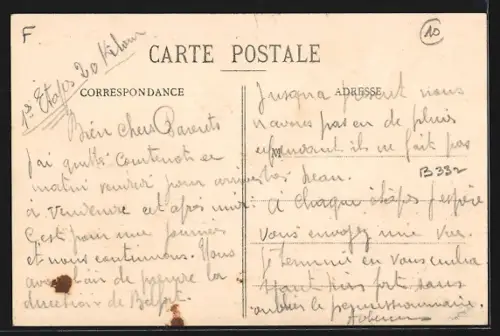 F
10
1re Etape 20 Kilom
CARTE POSTALE
CORRESPONDANCE
ADRESSE
Bien Chers Parents
J'ai quitté ce
matin vendredi pour arriver
à cet après midi
C'est pour une journée
et nous continuons. Nous
avons l'air de prendre la
direction de Belfort.
Jusqu'a présent nous
n'avons pas eu de pluie
cependant il ne fait pas
très beau.
B332
A chaque étape j'espère
vous envoyez une vue.
Je termine en vous embra
ssant bien fort sans
oublier le permissionnaire.